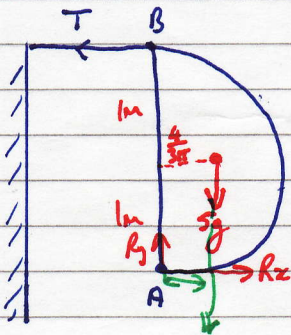 T
B
1m
4/3π
1m
5g
Ry
Rx
A